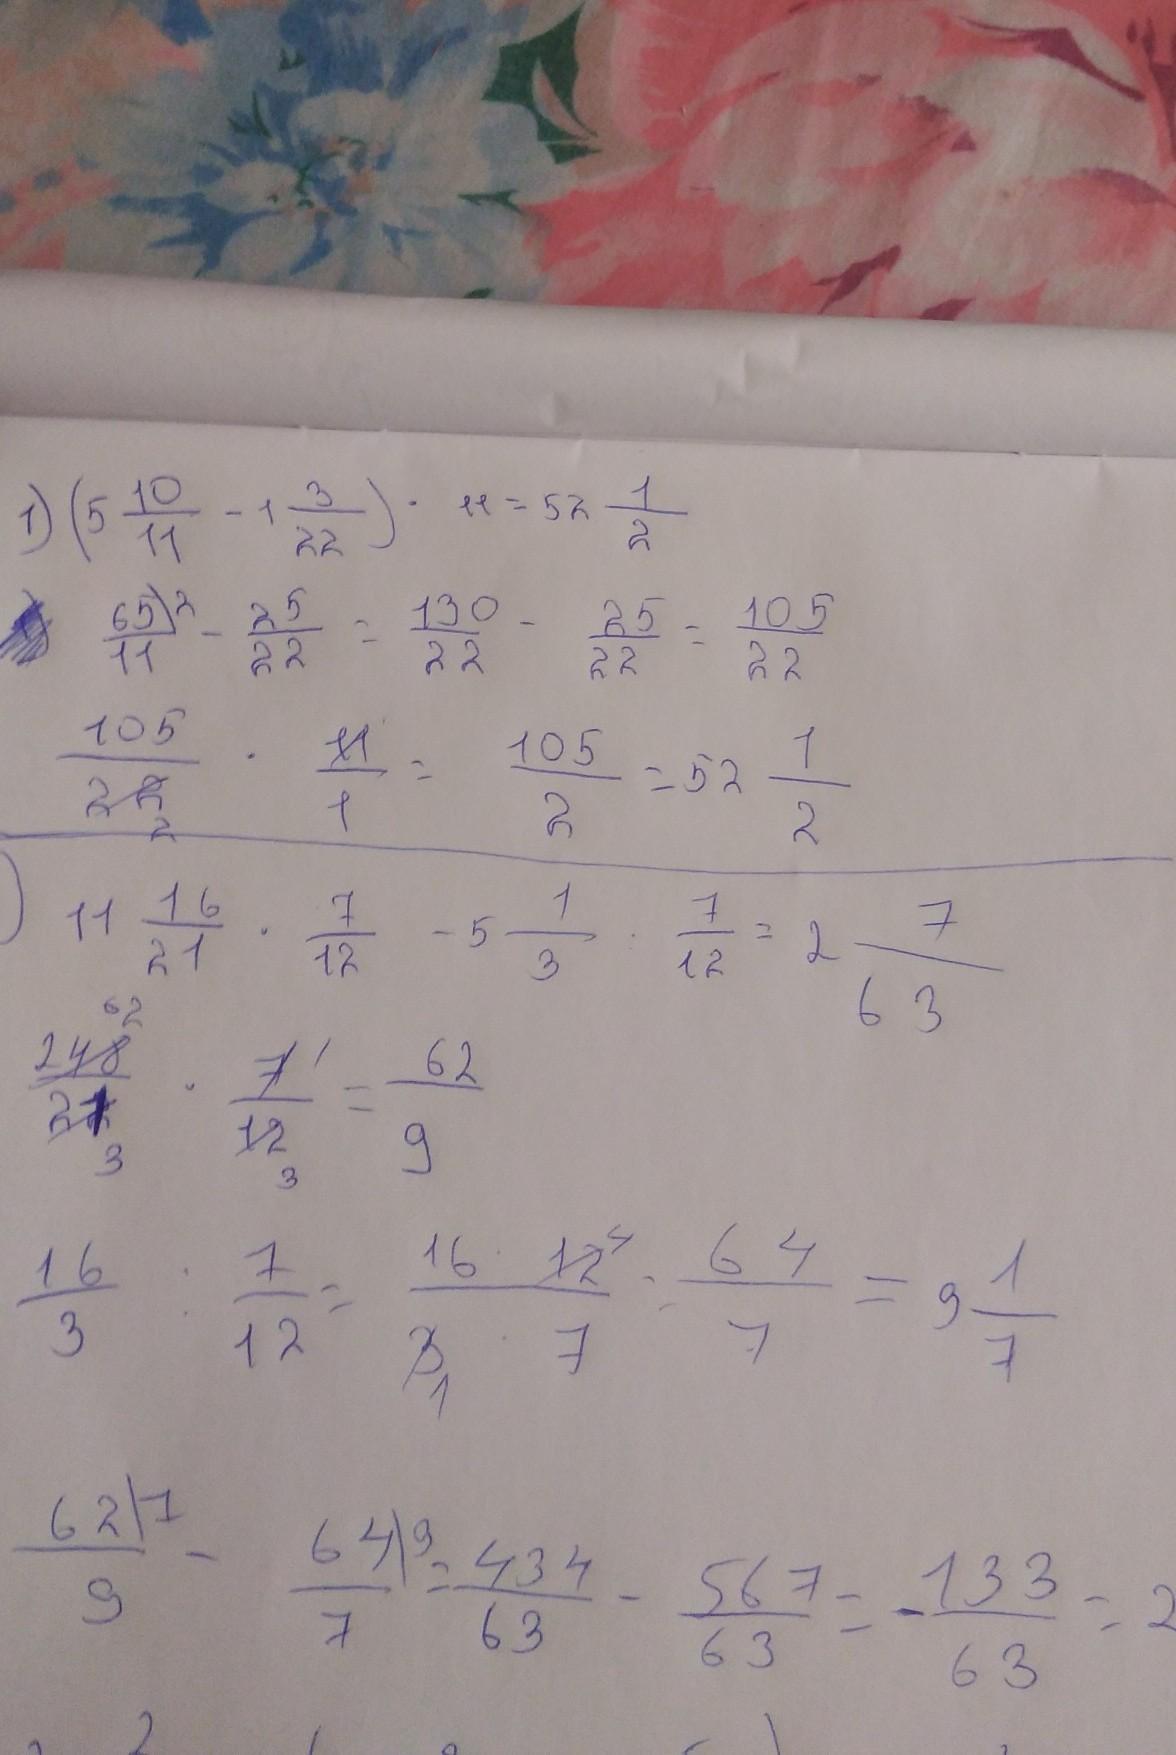 1) (5 10/11 - 1 3/22) · 11 = 52 1/2
65/11 \2 - 25/22 = 130/22 - 25/22 = 105/22
105/22 2 · 11/1 = 105/2 = 52 1/2
) 11 16/21 · 7/12 - 5 1/3 : 7/12 = 2 7/63
248 62/21 3 · 7 1/12 3 = 62/9
16/3 : 7/12 = 16 · 12 4/3 1 · 7 = 64/7 = 9 1/7
62/9 \7 - 64/7 \9 = 434/63 - 567/63 = -133/63 = 2